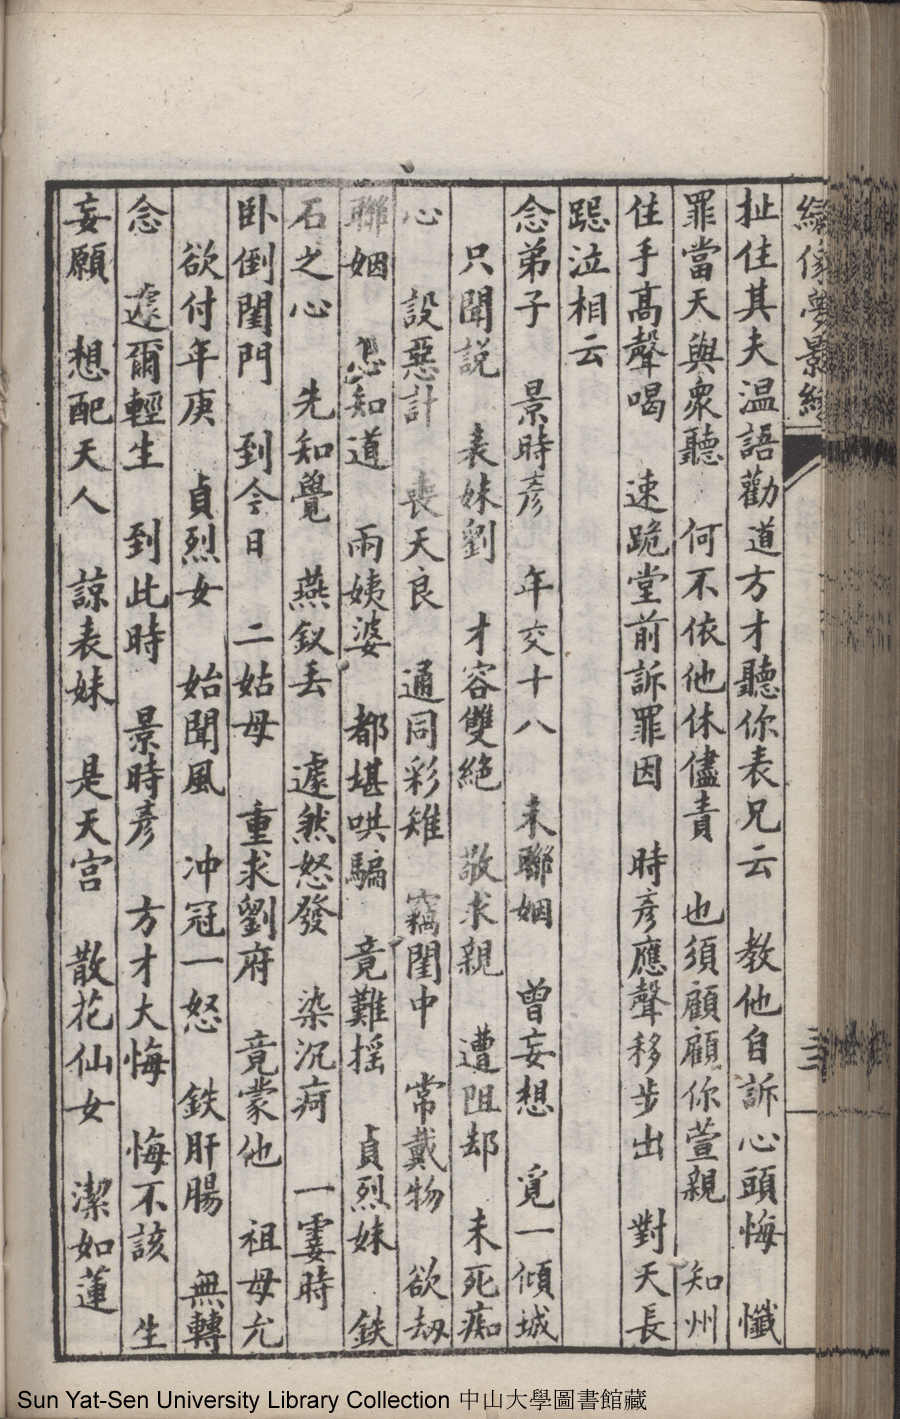 繡像夢影緣
扯住其夫温語勸道方才聽你表兄云　教他自訴心頭悔　懺
罪當天與衆聽　何不依他休儘責　也須顧顧你萱親　知州
住手高聲喝　速跪堂前訴罪因　時彥應聲移步出　對天長
跽泣相云
念弟子　景時彥　年交十八　未聯姻　曾妄想　覓一傾城
只聞説　表妹劉　才容雙絶　敬求親　遭阻却　未死痴
心　設惡計　喪天良　通同彩雉　竊閨中　常戴物　欲刼
聯姻　怎知道　兩姨婆　都堪哄騙　竟難摇　貞烈妹　鉄
石之心　先知覺　燕釵丢　遽然怒發　染沉疴　一霎時
卧倒閨門　到今日　二姑母　重求劉府　竟蒙他　祖母允
欲付年庚　貞烈女　始聞風　冲冠一怒　鉄肝腸　無轉
念　遽爾輕生　到此時　景時彥　方才大悔　悔不該　生
妄願　想配天人　諒表妹　是天宫　散花仙女　潔如蓮
三
Sun Yat-Sen University Library Collection 中山大學圖書館藏